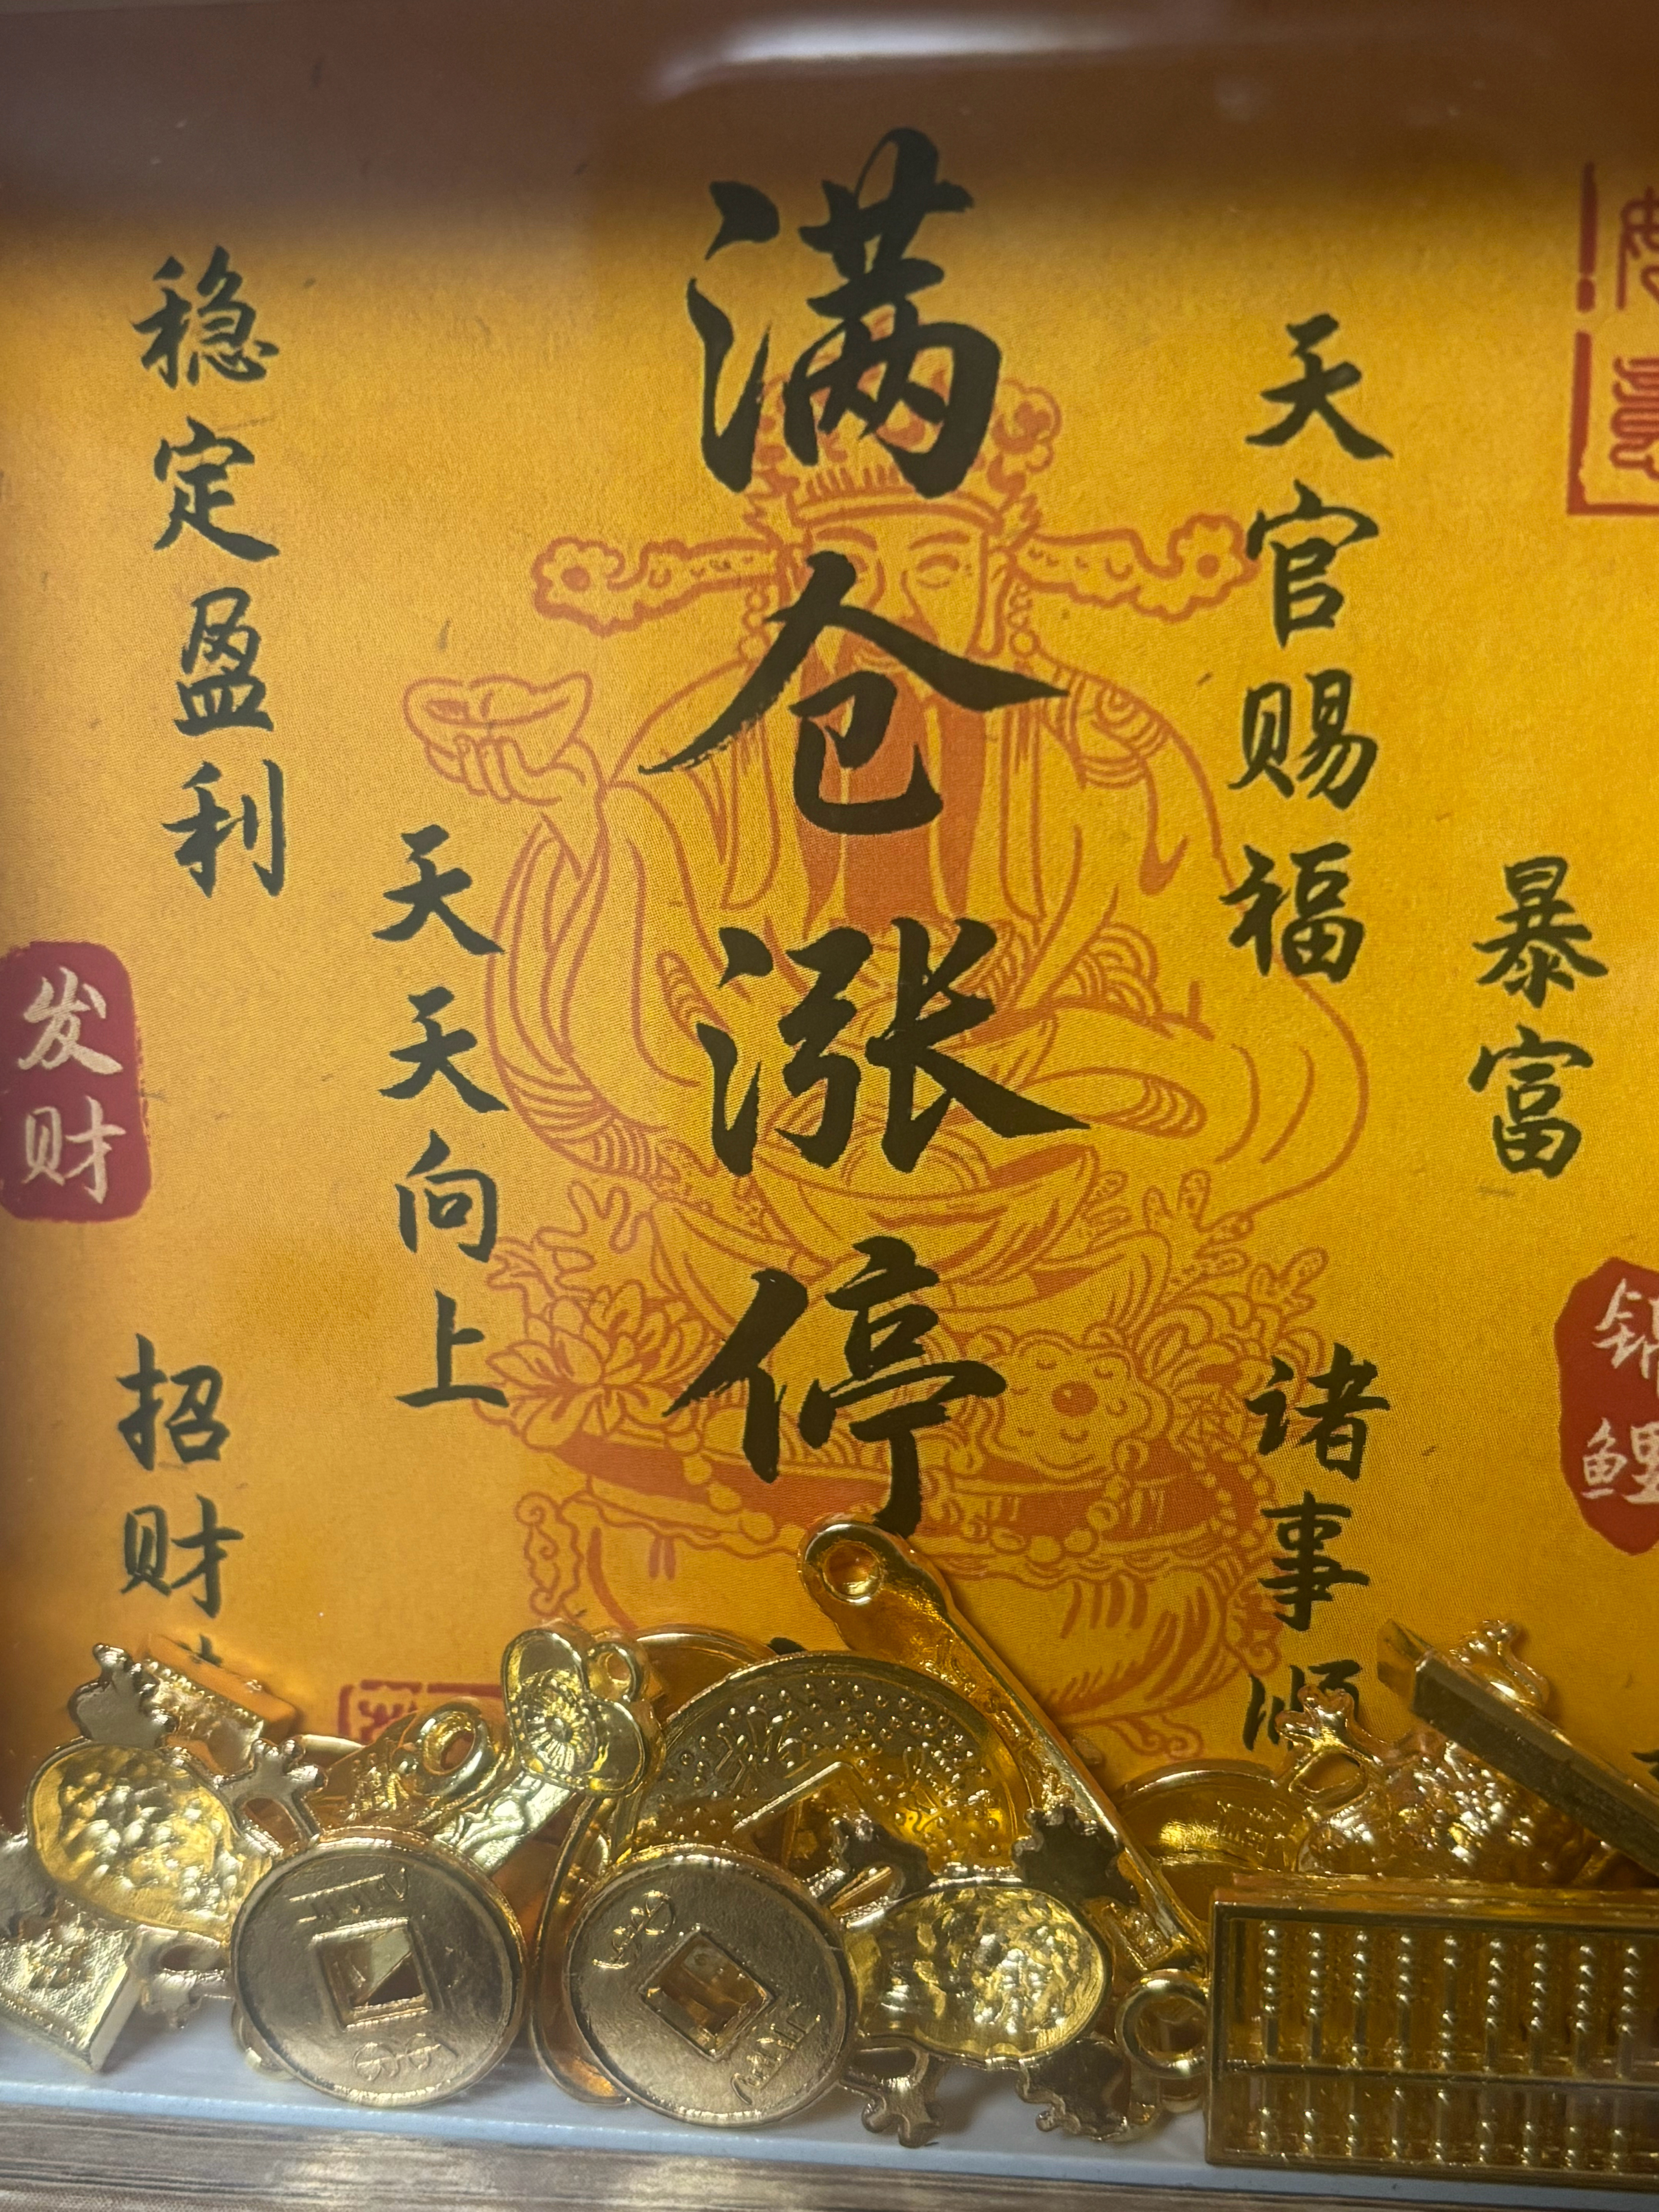 满仓涨停
稳定盈利
天天向上
发财
招财
天官赐福
暴富
诸事顺
锦鲤